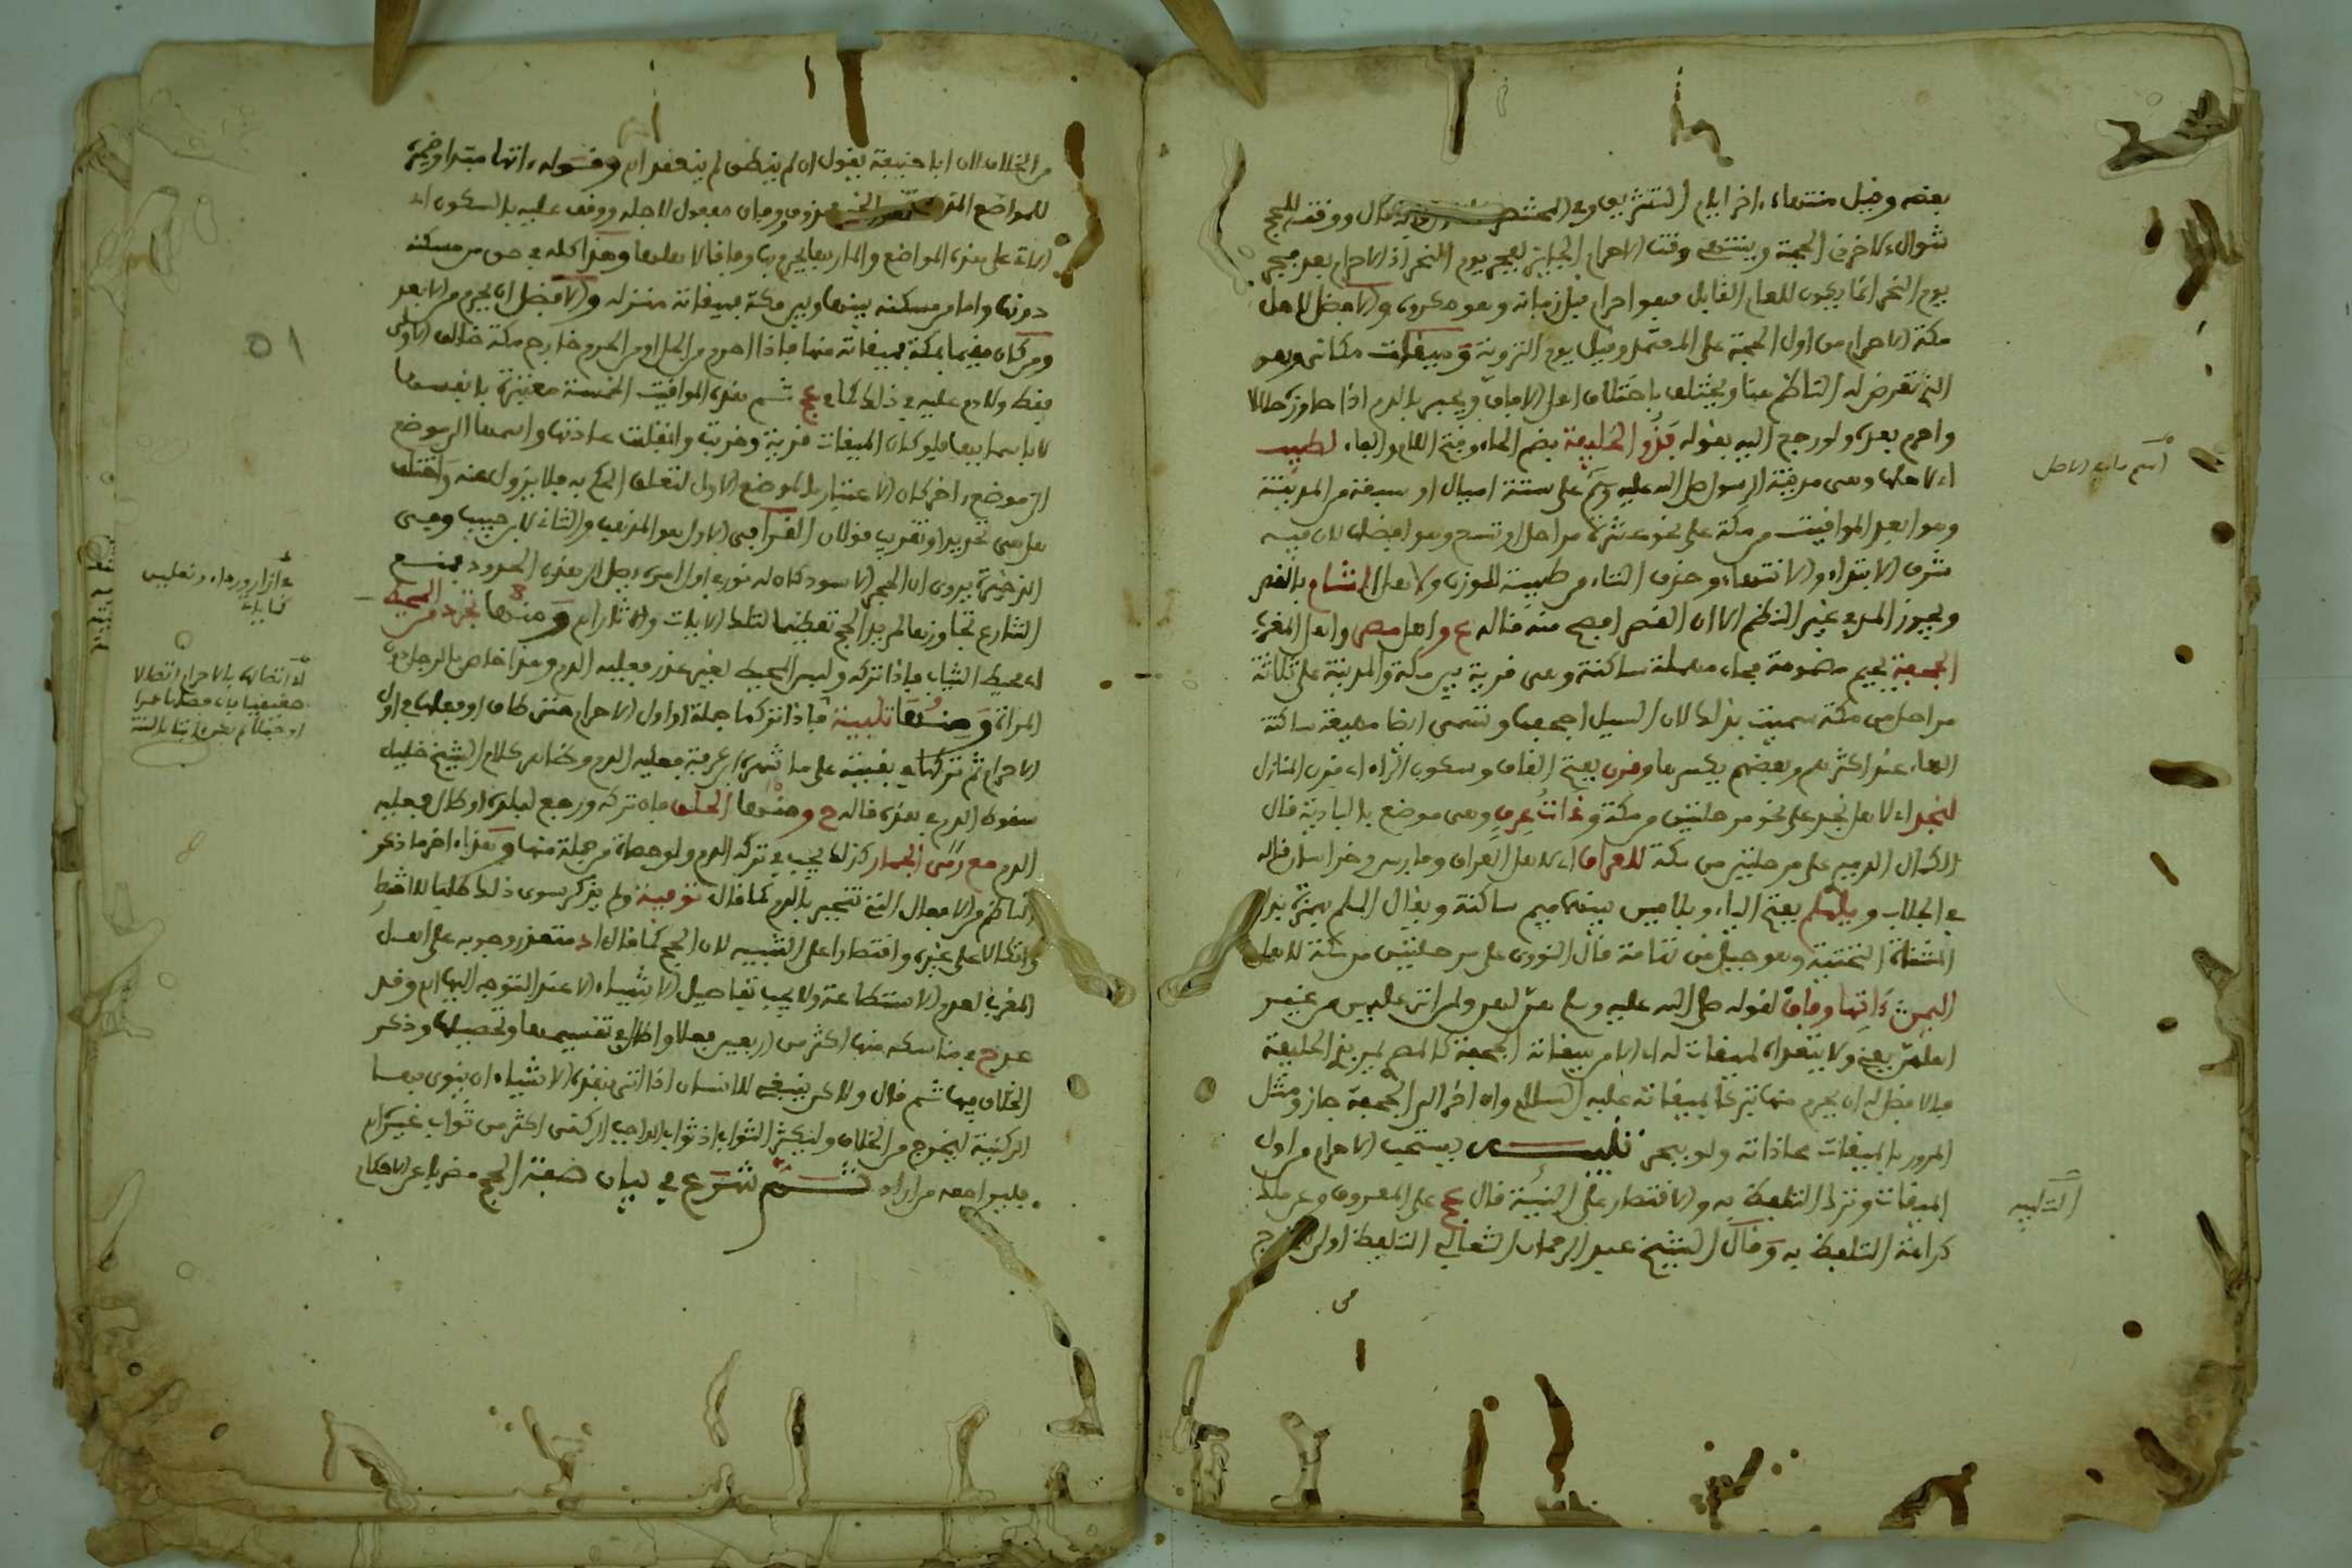 بعضه وقيل منتهاه ءاخر ايام التشريق وفي قال ووقته للحج
شوال لاخر ذي الحجة وينتهي وقت الاحرام الجايز لفجر يوم النحر اذ الاحرام بعد فجر
يوم النحر انما يكون للعام القابل فهو احرام قبل زمانه وهو مكروه والافضل لاهل
مكة الاحرام من اول الحجة على المعتمد وقيل يوم التروية وميقات مكاني وهو
الذي تعرض له الناظم هنا ويختلف باختلاف اهل الافاق ويجبر بالدم اذا جاوزه حلالا
واحرم بعده ولو رجع اليه بقوله فذو الحليفة بضم الحاء وفتح اللام والفاء لطيب
اي لاهلها وهي مدينة الرسول صلى الله عليه وسلم على ستة اميال او سبعة من المدينة
وهو ابعد المواقيت من مكة على نحو عشرة مراحل او تسع وهو افضلها لان فيه
شرف الابتداء والانتهاء وحذف التاء من طيبة للوزن ولاهل الشام بالقصر
ويجوز المد في غير النظم الا ان القصر افصح منه قاله ع واهل مصر واهل المغرب
الجحفة بجيم مضمومة فحاء مهملة ساكنة وهي قرية بين مكة والمدينة على ثلاثة
مراحل من مكة سميت بذلك لان السيل اجحفها وتسمى ايضا مهيعة ساكنة
الهاء عند اكثرهم وبعضهم يكسرها وقرن بفتح القاف وسكون الراء اي قرن المنازل
لنجد اي لاهل نجد على نحو مرحلتين من مكة وذات عرق وهي موضع بالبادية قال
الكمال الدميري على مرحلتين من مكة للعراق اي لاهل العراق وفارس وخراسان قاله
في الجلاب ويلملم بفتح الياء وبلامين بينهما ميم ساكنة ويقال الملم بهمزة بدل
المثناة التحتية وهو جبل من تهامة قال النووي على مرحلتين من مكة لاهل
اليمن ءاتيها وفاق لقوله صلى الله عليه وسلم هن لهن ولمن اتى عليهن من غير
اهلهن يعني ولا يتعداه لميقات له الا من ميقاته الجحفة كالمصري يمر بذي الحليفة
فالافضل له ان يحرم منها تبركا بميقاته عليه السلام وان اخر الى الجحفة جاز ومثل
المرور بالميقات محاذاته ولو ببحر تنبيه يستحب الاحرام من اول
الميقات وترك التلفظ به والاقتصار على النية قال عج على المعروف وعن ملك
كراهة التلفظ به وقال الشيخ عبد الرحمان الثعالبي التلفظ اولى للخروج
من
اسم ماء في الاصل
التلبية
من الخلاف لان ابا حنيفة يقول ان لم ينطق لم ينعقد اه وقوله ءاتيها مبتدا وضميره
للمواضع المتقدمة والخبر محذوف ووفاق مفعول لاجله ووقف عليه بالسكون اي
الاتي على هذه المواضع والمار بها يحرم منها وفاقا لاهلها وهذا كله في حق من مسكنه
دونها واما من مسكنه بينها وبين مكة فميقاته منزله والافضل ان يحرم من الابعد
ومن كان مقيما بمكة فميقاته منها فاذا احرم من الحل او من الحرم خارج مكة خالف الاولى
فقط ولا دم عليه في ذلك كما في عج ثم هذه المواقيت الخمسة معتبرة بانفسها
لا باسمايها فلو كان الميقات قرية وخربت وانتقلت عمارتها واسمها الى موضع
الى موضع ءاخر كان الاعتبار بالموضع الاول لتعلق الحكم به فلا يزول عنه واختلف
هل هي تحديد او تقريب قولان القرافي الاول هو المذهب والثاني لابن حبيب وفي
الذخيرة يروى ان الحجر الاسود كان له نور في اول امره يصل الى هذه الحدود فمنع
الشارع تجاوزها لمريد الحج تعظيما لتلك الايات والاثار اه ومنها تجرد من المحيط
اي محيط الثياب فاذا تركه ولبس المحيط لغير عذر فعليه الدم وهذا خاص بالرجل دون
المراة ومنها تلبية فاذا تركها جملة او اول الاحرام حتى طاف او فعلها في اول
الاحرام ثم تركها في بقيته على ما شهره ابن عرفة فعليه الدم وظاهر كلام الشيخ خليل
سقوط الدم في هذه قاله ح ومنها الحلق فان تركه ورجع لبلده او طال فعليه
الدم مع رمي الجمار كذلك يجب في تركه الدم ولو حصاة من جملة منها وهذا ءاخر ما ذكر
الناظم من الافعال التي تنجبر بالدم كما قال توفية ولم يذكر سوى ذلك طلبا للاختصار
واتكالا على غيره واقتصارا على التنبيه لان الحج كما قال اد متعذر وجوبه على اهل
المغرب لعدم الاستطاعة ولا يجب تفاصيل الاشياء الا عند التوجه اليها اه وقد
عد ح في مناسكه منها اكثر من اربعين فعلا واطال في تقسيمها وتحصيلها وذكر
الخلاف فيها ثم قال ولاكن ينبغي للانسان اذا اتى بهذه الاشياء ان ينوي بها
الركنية ليخرج من الخلاف وليكثر الثواب اذ ثواب الواجب الركني اكثر من ثواب غيره اه
فليراجعه من اراده ثم شرع في بيان صفة الحج معربا عن الاحكام
ازار ورداء ونعلين
لاتصالها بالاحرام اتصالا
حقيقيا
51